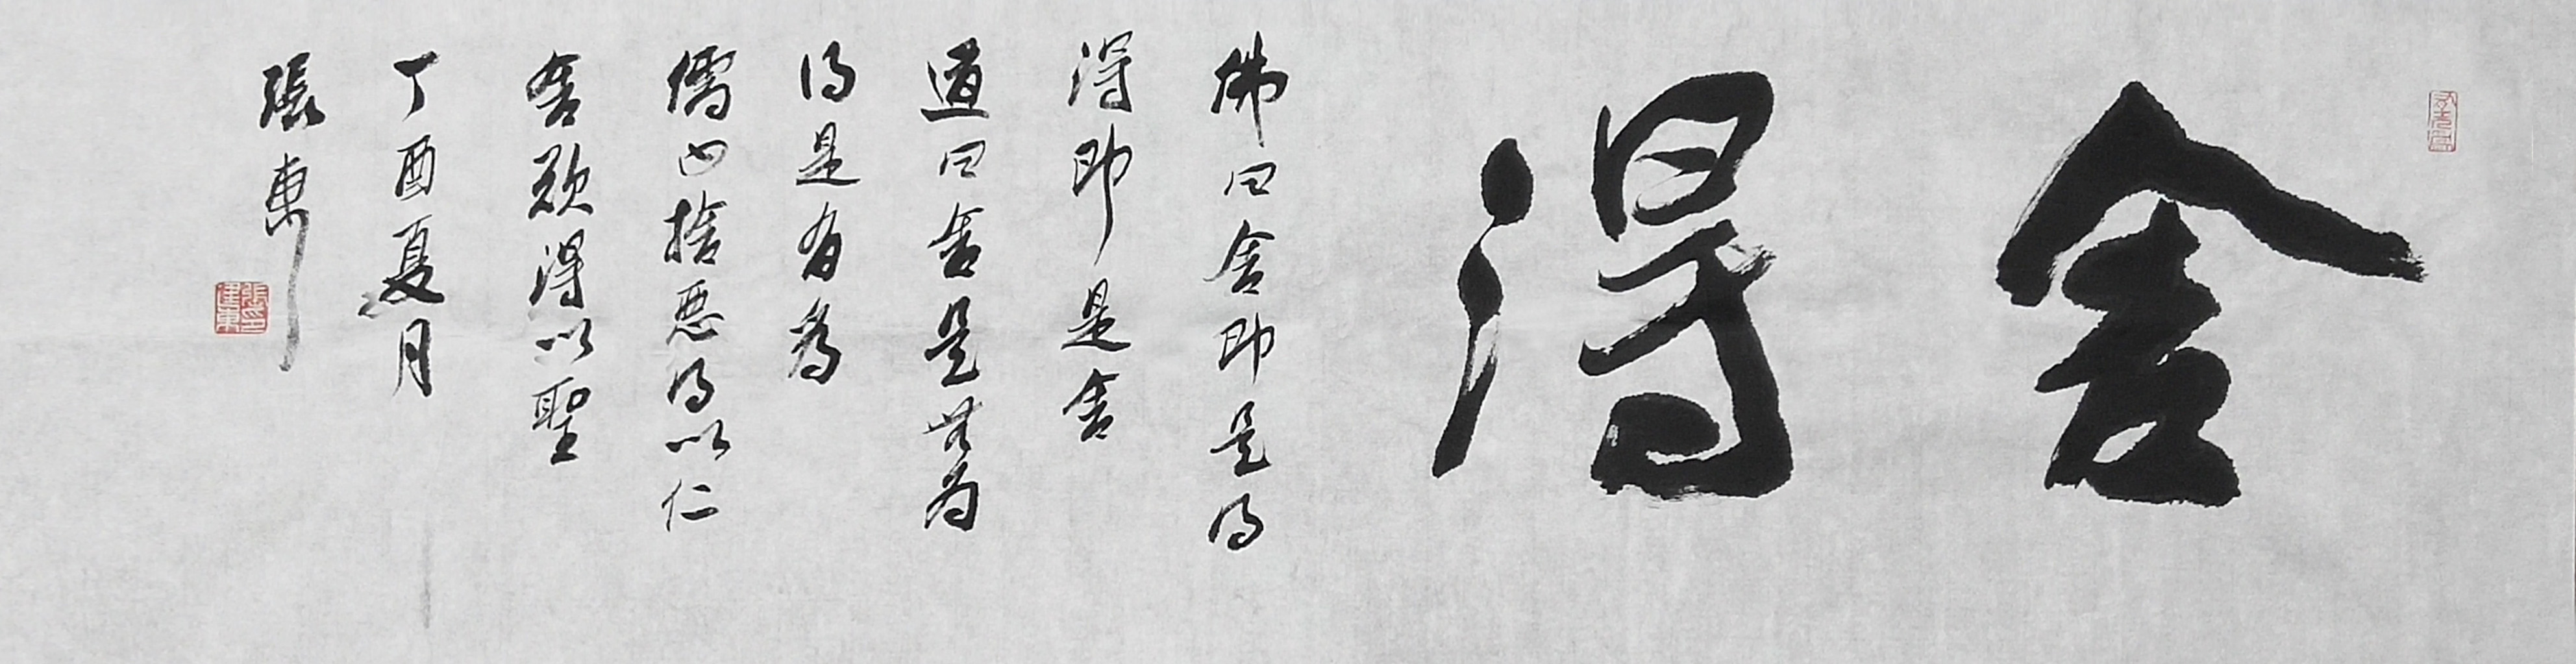 舍得
佛曰舍即是得
得即是舍
道曰舍是无为
得是有為
儒曰捨惡得以仁
舍欲得以聖
丁酉夏月
張東